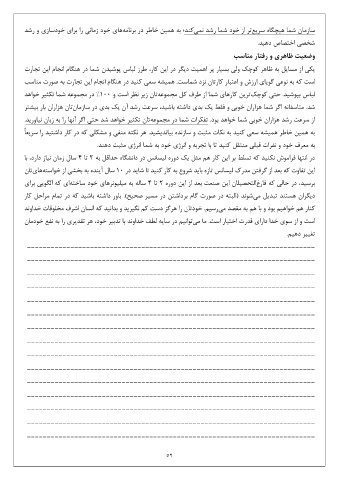 سازمان شما هیچگاه سریع‌تر از خود شما رشد نمی‌کند؛ به همین خاطر در برنامه‌های خود زمانی را برای خودسازی و رشد
شخصی اختصاص دهید.
وضعیت ظاهری و رفتار مناسب
یکی از مسایل به ظاهر کوچک ولی بسیار پر اهمیت دیگر در این کار، طرز لباس پوشیدن شما در هنگام انجام این تجارت
است که به نوعی گویای ارزش و اعتبار کارتان نزد شماست. همیشه سعی کنید در هنگام انجام این تجارت به صورت مناسب
لباس بپوشید. حتی کوچک‌ترین کارهای شما از طرف کل مجموعه‌تان زیر نظر است و ۱۰۰٪ در مجموعه شما تکثیر خواهد
شد. متاسفانه اگر شما هزاران خوبی و فقط یک بدی داشته باشید، سرعت رشد آن یک بدی در سازمان‌تان هزاران بار بیشتر
از سرعت رشد هزاران خوبی شما خواهد بود. تفکرات شما در مجموعه‌تان تکثیر خواهد شد حتی اگر آنها را به زبان نیاورید.
به همین خاطر همیشه سعی کنید به نکات مثبت و سازنده بیاندیشید. هر نکته منفی و مشکلی که در کار داشتید را سریعاً
به معرف خود و نفرات قبلی منتقل کنید تا با تجربه و انرژی خود به شما انرژی مثبت دهند.
در انتها فراموش نکنید که تسلط بر این کار هم مثل یک دوره لیسانس در دانشگاه حداقل به ۲ تا ۴ سال زمان نیاز دارد، با
این تفاوت که بعد از گرفتن مدرک لیسانس تازه باید شروع به کار کنید تا شاید در ۱۰ سال آینده به بخشی از خواسته‌های‌تان
برسید، در حالی که فارغ‌التحصیلان این صنعت بعد از این دوره ۲ تا ۴ ساله به میلیونرهای خود ساخته‌ای که الگویی برای
دیگران هستند تبدیل می‌شوند (البته در صورت گام برداشتن در مسیر صحیح). باور داشته باشید که در تمام مراحل کار
کنار هم خواهیم بود و با هم به مقصد می‌رسیم. خودتان را هرگز دست کم نگیرید و بدانید که انسان اشرف مخلوقات خداوند
است و از سوی خدا دارای قدرت اختیار است. ما می‌توانیم در سایه لطف خداوند با تدبیر خود، هر تقدیری را به نفع خودمان
تغییر دهیم.
۵۲